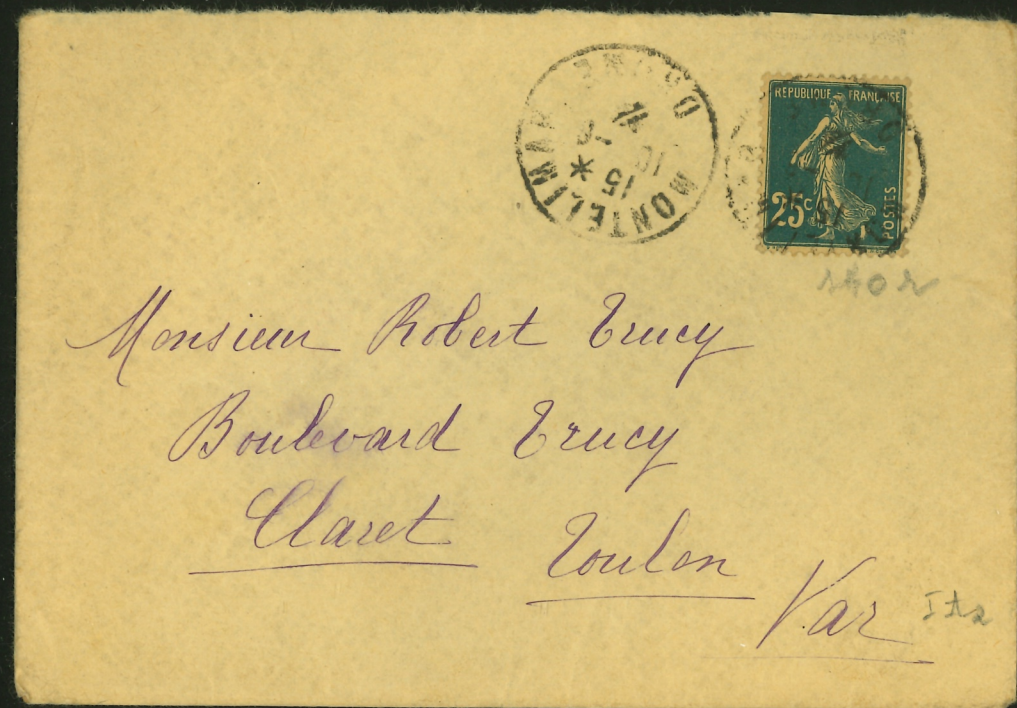 MONTELIMAR
15
10
REPUBLIQUE FRANÇAISE
25c
POSTES
Monsieur Robert Trucy
Boulevard Trucy
Claret Toulon
Var